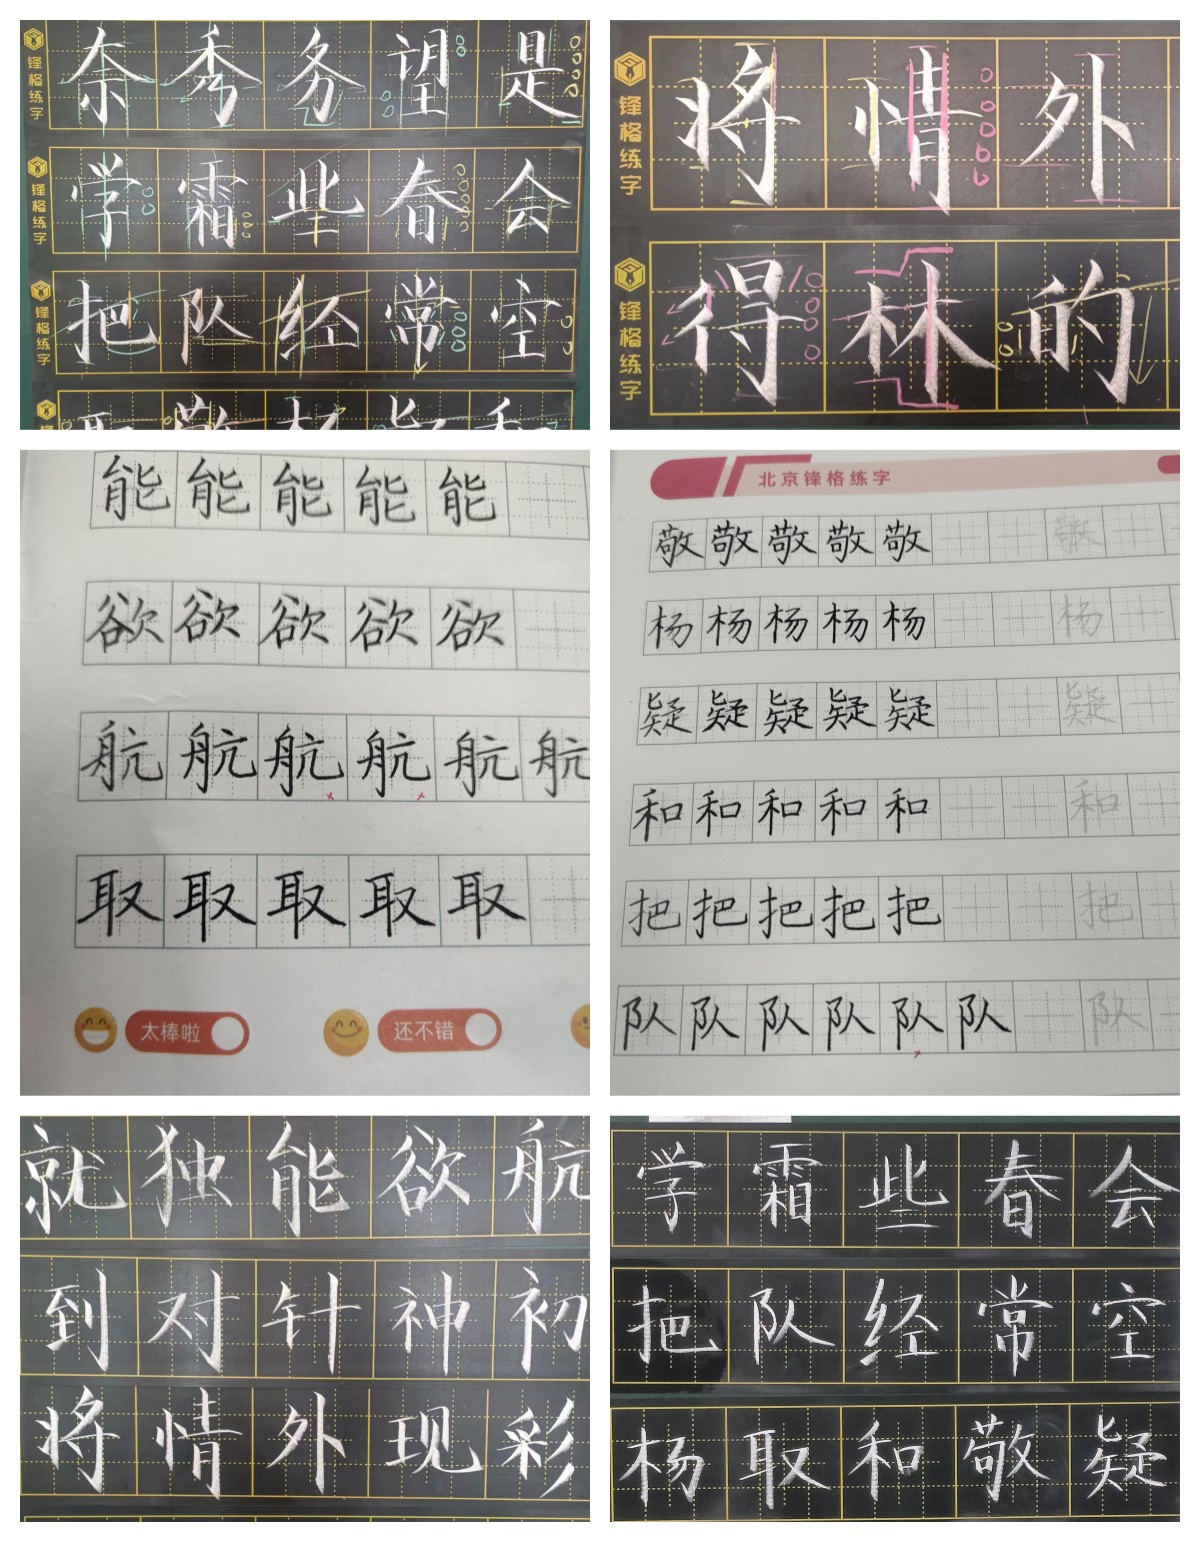 锋格练字
奈秀务望是
锋格练字
学霜些春会
锋格练字
把队经常空
锋格练字
将情外
锋格练字
得林的
能能能能能
欲欲欲欲欲
航航航航航航
取取取取取
太棒啦 还不错
北京锋格练字
敬敬敬敬敬 敬
杨杨杨杨杨 杨
疑疑疑疑疑 疑
和和和和和 和
把把把把把 把
队队队队队队 队
就独能欲航
到对针神初
将情外现彩
学霜些春会
把队经常空
杨取和敬疑